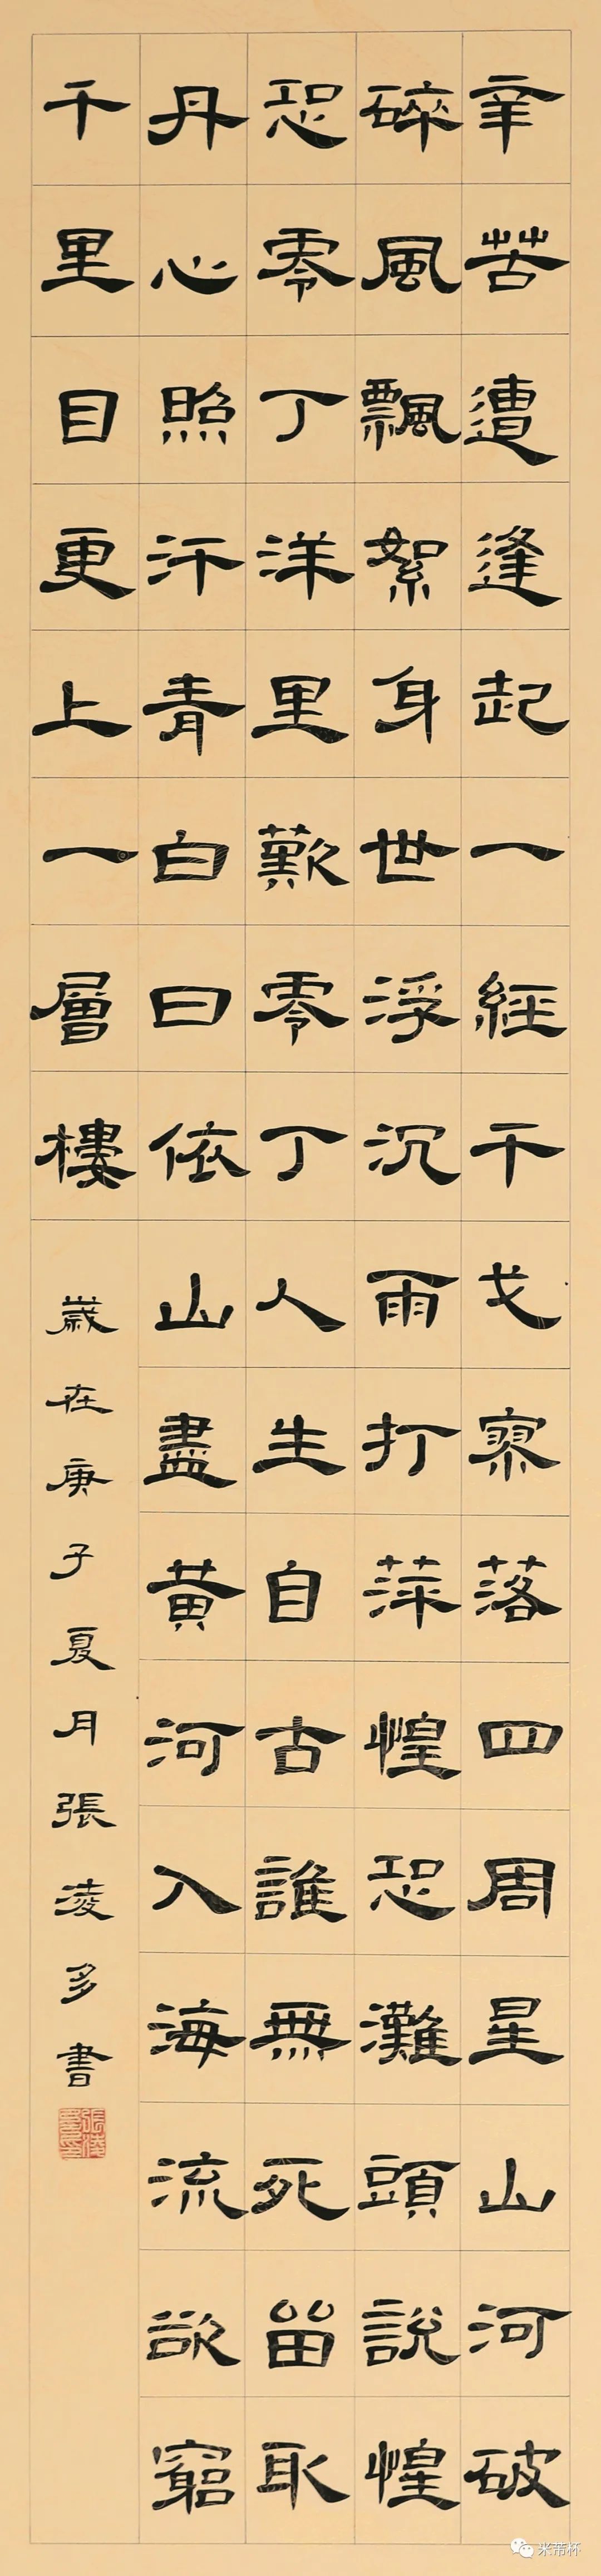 辛苦遭逢起一經干戈寥落四周星山河破
碎風飄絮身世浮沉雨打萍惶恐灘頭說惶
恐零丁洋里歎零丁人生自古誰無死留取
丹心照汗青白日依山盡黃河入海流欲窮
千里目更上一層樓
歲在庚子夏月張淩多書
米芾杯